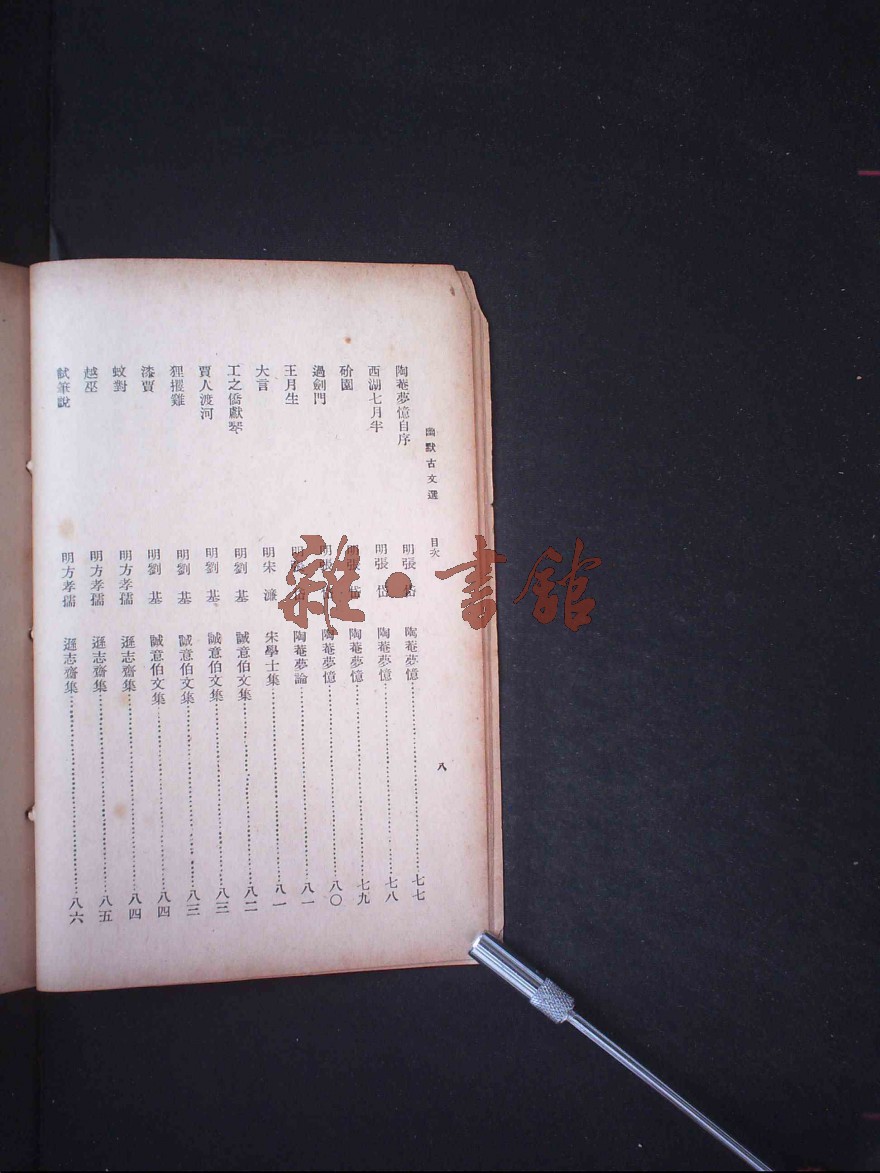 幽默古文選 目次 八
陶菴夢憶自序 明張岱 陶菴夢憶 七七
西湖七月半 明張岱 陶菴夢憶 七八
砎園 明張岱 陶菴夢憶 七九
過劍門 明張岱 陶菴夢憶 八〇
王月生 明張岱 陶菴夢論 八一
大言 明宋濂 宋學士集 八一
工之僑獻琴 明劉基 誠意伯文集 八二
賈人渡河 明劉基 誠意伯文集 八三
狸搌雞 明劉基 誠意伯文集 八三
漆賈 明劉基 誠意伯文集 八四
蚊對 明方孝孺 遜志齋集 八四
越巫 明方孝孺 遜志齋集 八五
試筆說 明方孝孺 遜志齋集 八六
雜·書館